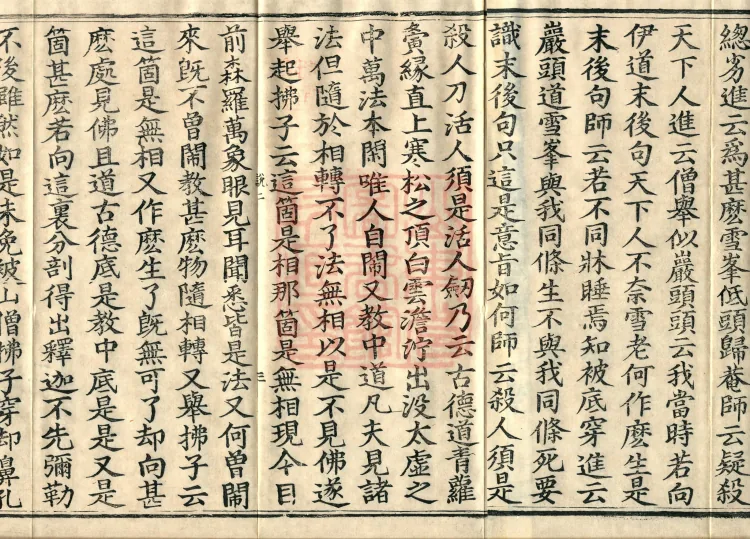 總劣進云爲甚麽雪峯低頭歸菴師云疑殺
天下人進云僧舉似巖頭頭云我當時若向
伊道末後句天下人不奈雪老何作麽生是
末後句師云若不同牀睡焉知被底穿進云
巖頭道雪峯與我同條生不與我同條死要
識末後句只這是意旨如何師云殺人須是
殺人刀活人須是活人劒乃云古德道青蘿
夤緣直上寒松之頂白雲澹泞出没太虛之
中萬法本閑唯人自鬧又教中道凡夫見諸
法但隨於相轉不了法無相以是不見佛遂
舉起拂子云這箇是相那箇是無相現今目
說二 三
前森羅萬象眼見耳聞悉皆是法又何曾鬧
來旣不曾鬧教甚麽物隨相轉又舉拂子云
這箇是無相又作麽生了旣無可了却向甚
麽處見佛且道古德底是教中底是是又是
箇甚麽若向這裏分剖得出釋迦不先彌勒
不後雖然如是未免被山僧拂子穿却鼻孔